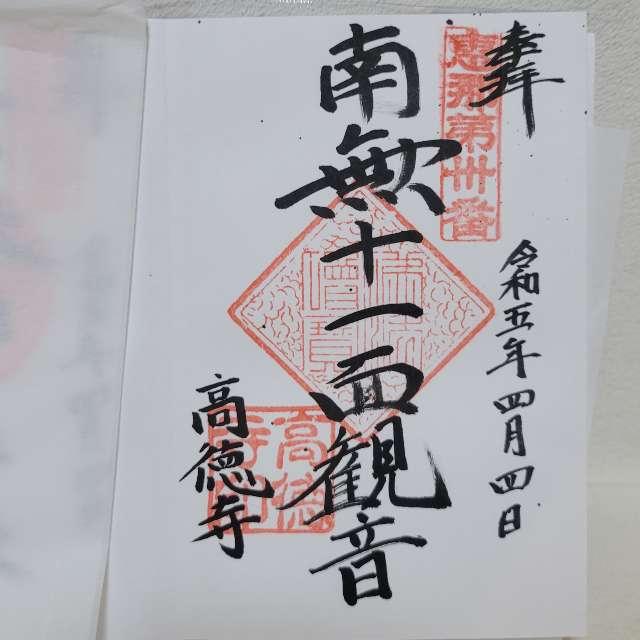 奉拝
恵那第卅番
令和五年四月四日
南無十一面観音
高徳寺
高徳
寺印